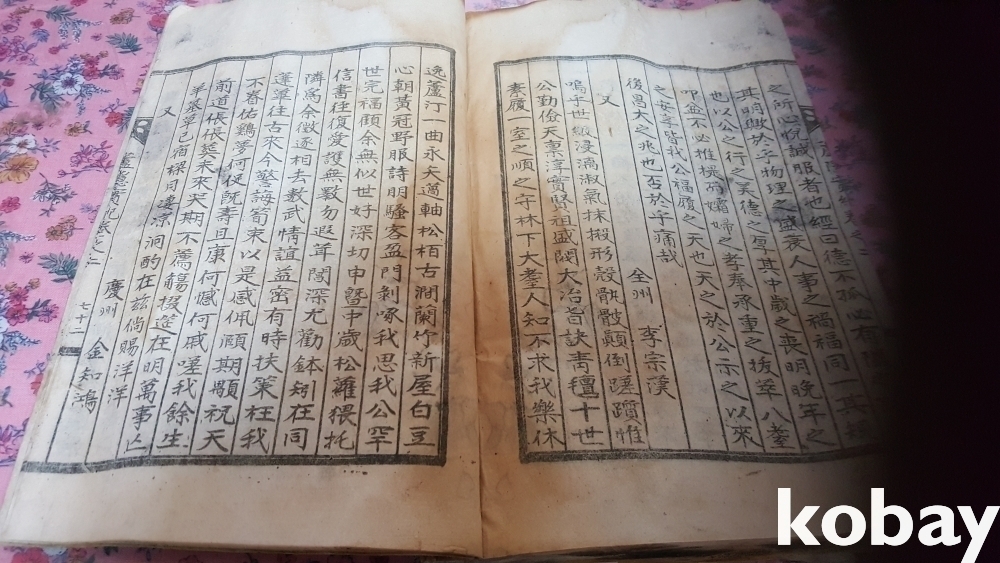 之所心悅誠服者也經曰德不孤必有
其明興於乎物理之盛衰人事之禍福同一其
也以公之行之美德之厚其中歲之喪明晩年之
叩盆不必推機而孀婦之孝奉承重之拔萃八耋
之安享皆我公福履之天也天之於公示之以來
後昌大之兆也否於乎痛哉
全州 李宗漢
又
嗚乎世級浸漓淑氣抹摋形殼骯髒顚倒蹉躓惟
公勤儉天稟淳實賢祖盛閥大冶旨訣靑氈十世
素履一室之順之守林下大耋人知不求我樂休
逸蘆汀一曲永矢薖軸松栢古澗蘭竹新屋白豆
心朝黃冠野服詩朋騷客盈門剝啄我思我公罕
世完福顧余無似世好深切申曁中歲松蘿猥托
信書往復愛護無斁勿遐茸闒深尤勸鉢矧在同
隣爲余徵逐相去數武情誼益密有時扶策枉我
蓬蓽往古來今警誨荀束以是感佩頎期顒祝天
不眷佑鷄夢何促旣壽且康何憾何戚嗟我餘生
前道倀倀奠未來天期不薦觴掇筵在明萬事亡
羊墓草已宿標月遙凉泂酌在玆倘賜洋洋
慶州 金知鴻
又
七十二
kobay